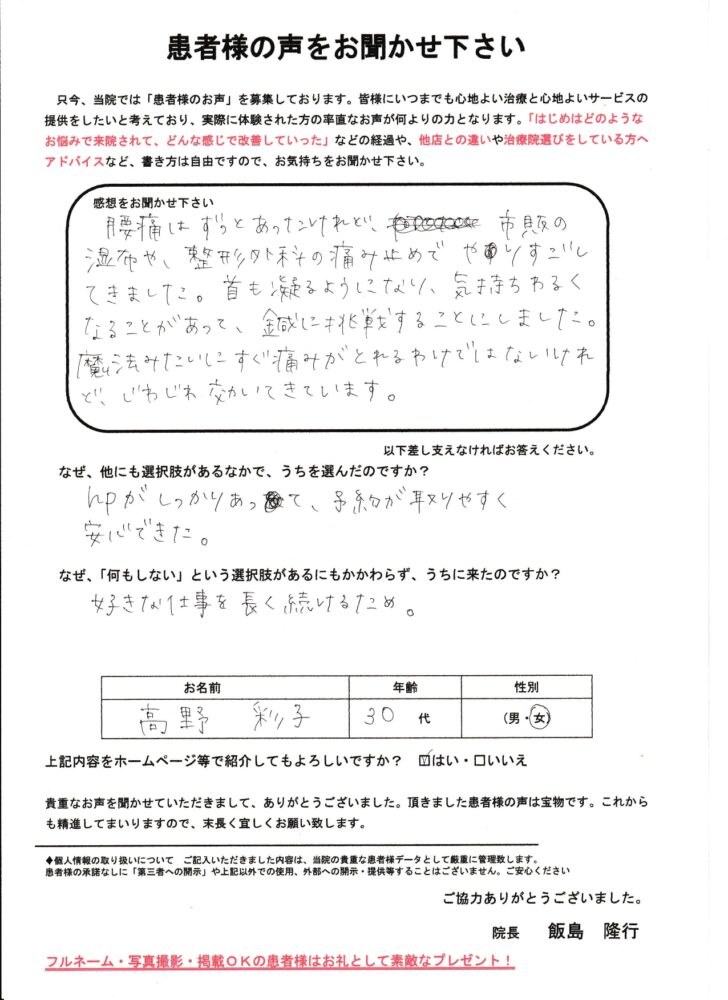 患者様の声をお聞かせ下さい
只今、当院では「患者様のお声」を募集しております。皆様にいつまでも心地よい治療と心地よいサービスの
提供をしたいと考えており、実際に体験された方の率直なお声が何よりの力となります。「はじめはどのような
お悩みで来院されて、どんな感じで改善していった」などの経過や、他店との違いや治療院選びをしている方へ
アドバイスなど、書き方は自由ですので、お気持ちをお聞かせ下さい。
感想をお聞かせ下さい
腰痛はずっとあったけれど、市販の
湿布や、整形外科の痛み止めでやりすごし
てきました。首も凝るようになり、気持ちわるく
なることがあって、鍼に挑戦することにしました。
魔法みたいにすぐ痛みがとれるわけではないけれ
ど、じわじわ効いてきています。
以下差し支えなければお答えください。
なぜ、他にも選択肢があるなかで、うちを選んだのですか？
hpがしっかりあって、予約が取りやすく
安心できた。
なぜ、「何もしない」という選択肢があるにもかかわらず、うちに来たのですか？
好きな仕事を長く続けるため。
お名前 年齢 性別
高野 彩子 30 代 （男・女）
上記内容をホームページ等で紹介してもよろしいですか？ ☑はい・□いいえ
貴重なお声を聞かせていただきまして、ありがとうございました。頂きました患者様の声は宝物です。これから
も精進してまいりますので、末長く宜しくお願い致します。
◆個人情報の取り扱いについて ご記入いただきました内容は、当院の貴重な患者様データとして厳重に管理致します。
患者様の承諾なしに「第三者への開示」や上記以外での使用、外部への開示・提供等することはございません。ご安心ください
ご協力ありがとうございました。
院長 飯島 隆行
フルネーム・写真撮影・掲載ＯＫの患者様はお礼として素敵なプレゼント！